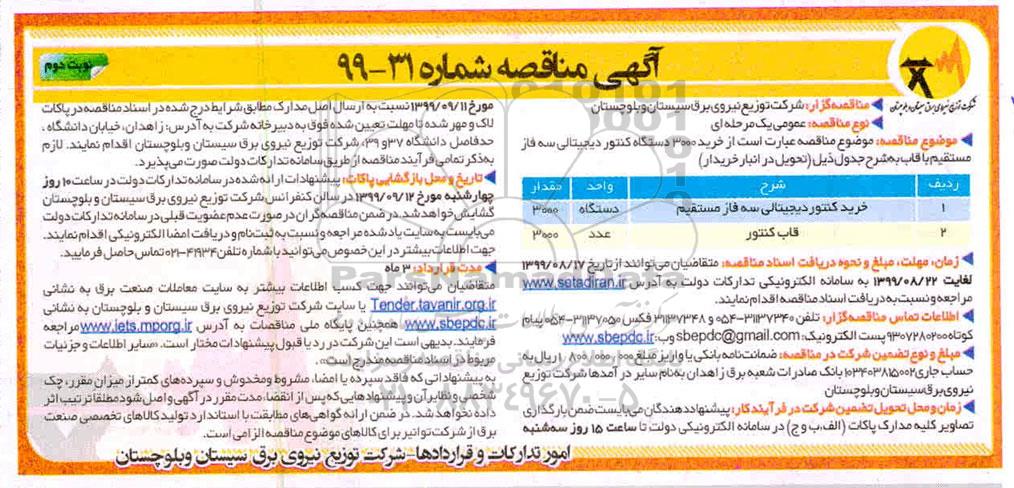 آگهی مناقصه شماره ۳۱-۹۹
نوبت دوم
شرکت توزیع نیروی برق سیستان و بلوچستان
مناقصه گزار: شرکت توزیع نیروی برق سیستان و بلوچستان
نوع مناقصه: عمومی یک مرحله ای
موضوع مناقصه: موضوع مناقصه عبارت است از خرید ۳۰۰۰ دستگاه کنتور دیجیتالی سه فاز
مستقیم با قاب به شرح جدول ذیل (تحویل در انبار خریدار)
ردیف شرح واحد مقدار
۱ خرید کنتور دیجیتالی سه فاز مستقیم دستگاه ۳۰۰۰
۲ قاب کنتور عدد ۳۰۰۰
زمان، مهلت، مبلغ و نحوه دریافت اسناد مناقصه: متقاضیان می توانند از تاریخ ۱۳۹۹/۰۸/۱۷
لغایت ۱۳۹۹/۰۸/۲۲ به سامانه الکترونیکی تدارکات دولت به آدرس www.setadiran.ir
مراجعه و نسبت به دریافت اسناد مناقصه اقدام نمایند.
اطلاعات تماس مناقصه گزار: تلفن ۳۱۱۳۷۳۴۰-۰۵۴ و ۳۱۱۳۷۳۴۸ فکس ۳۱۱۳۷۰۵۰-۰۵۴ پیام
کوتاه ۹۳۰۷۲۸۰۲۰۰ پست الکترونیک: sbepdc@gmail.com وب: www.sbepdc.ir
مبلغ و نوع تضمین شرکت در مناقصه: ضمانت نامه بانکی یا واریز مبلغ ریال به
حساب جاری ۰۱۰۳۴۰۳۸۵۰۰۲ بانک صادرات شعبه برق زاهدان به نام سایر درآمدها شرکت توزیع
نیروی برق سیستان و بلوچستان
زمان و محل تحویل تضمین شرکت در فرآیند کار: پیشنهاد دهندگان می بایست ضمن بارگذاری
تصاویر کلیه مدارک پاکات (الف، ب و ج) در سامانه الکترونیکی دولت تا ساعت ۱۵ روز سه شنبه
مورخ ۱۳۹۹/۰۹/۱۱ نسبت به ارسال اصل مدارک مطابق شرایط درج شده در اسناد مناقصه در پاکات
لاک و مهر شده تا مهلت تعیین شده فوق به دبیرخانه شرکت به آدرس: زاهدان، خیابان دانشگاه،
حدفاصل دانشگاه ۳۷ و ۳۹، شرکت توزیع نیروی برق سیستان و بلوچستان اقدام نمایند. لازم
به ذکر تمامی فرآیند مناقصه از طریق سامانه تدارکات دولت صورت می پذیرد.
تاریخ و محل بازگشایی پاکات: پیشنهادات ارائه شده در سامانه تدارکات دولت در ساعت ۱۰ روز
چهارشنبه مورخ ۱۳۹۹/۰۹/۱۲ در سالن کنفرانس شرکت توزیع نیروی برق سیستان و بلوچستان
گشایش خواهد شد. در ضمن مناقصه گران در صورت عدم عضویت قبلی در سامانه تدارکات دولت
می بایست به سایت یاد شده مراجعه و نسبت به ثبت نام و دریافت امضا الکترونیکی اقدام نمایند.
جهت اطلاعات بیشتر در این خصوص می توانید با شماره تلفن ۴۱۹۳۴-۰۲۱ تماس حاصل فرمایید.
مدت قرارداد: ۳ ماه
متقاضیان می توانند جهت کسب اطلاعات بیشتر به سایت معاملات صنعت برق به نشانی
Tender.tavanir.org.ir یا سایت شرکت توزیع نیروی برق سیستان و بلوچستان به نشانی
www.sbepdc.ir همچنین پایگاه ملی مناقصات به آدرس www.iets.mporg.ir مراجعه
فرمایند. بدیهی است این شرکت در رد یا قبول پیشنهادات مختار است. «سایر اطلاعات و جزئیات
مربوط در اسناد مناقصه مندرج است»
به پیشنهاداتی که فاقد سپرده یا امضا، مشروط و مخدوش و سپرده های کمتر از میزان مقرر، چک
شخصی و نظایر آن و پیشنهادهایی که پس از انقضا، مدت مقرر در آگهی واصل شود مطلقا ترتیب اثر
داده نخواهد شد. در ضمن ارائه گواهی های مطابقت با استاندارد تولید کالاهای تخصصی صنعت
برق از شرکت توانیر برای کالاهای موضوع مناقصه الزامی است.
امور تدارکات و قراردادها-شرکت توزیع نیروی برق سیستان و بلوچستان
ParsNamadData